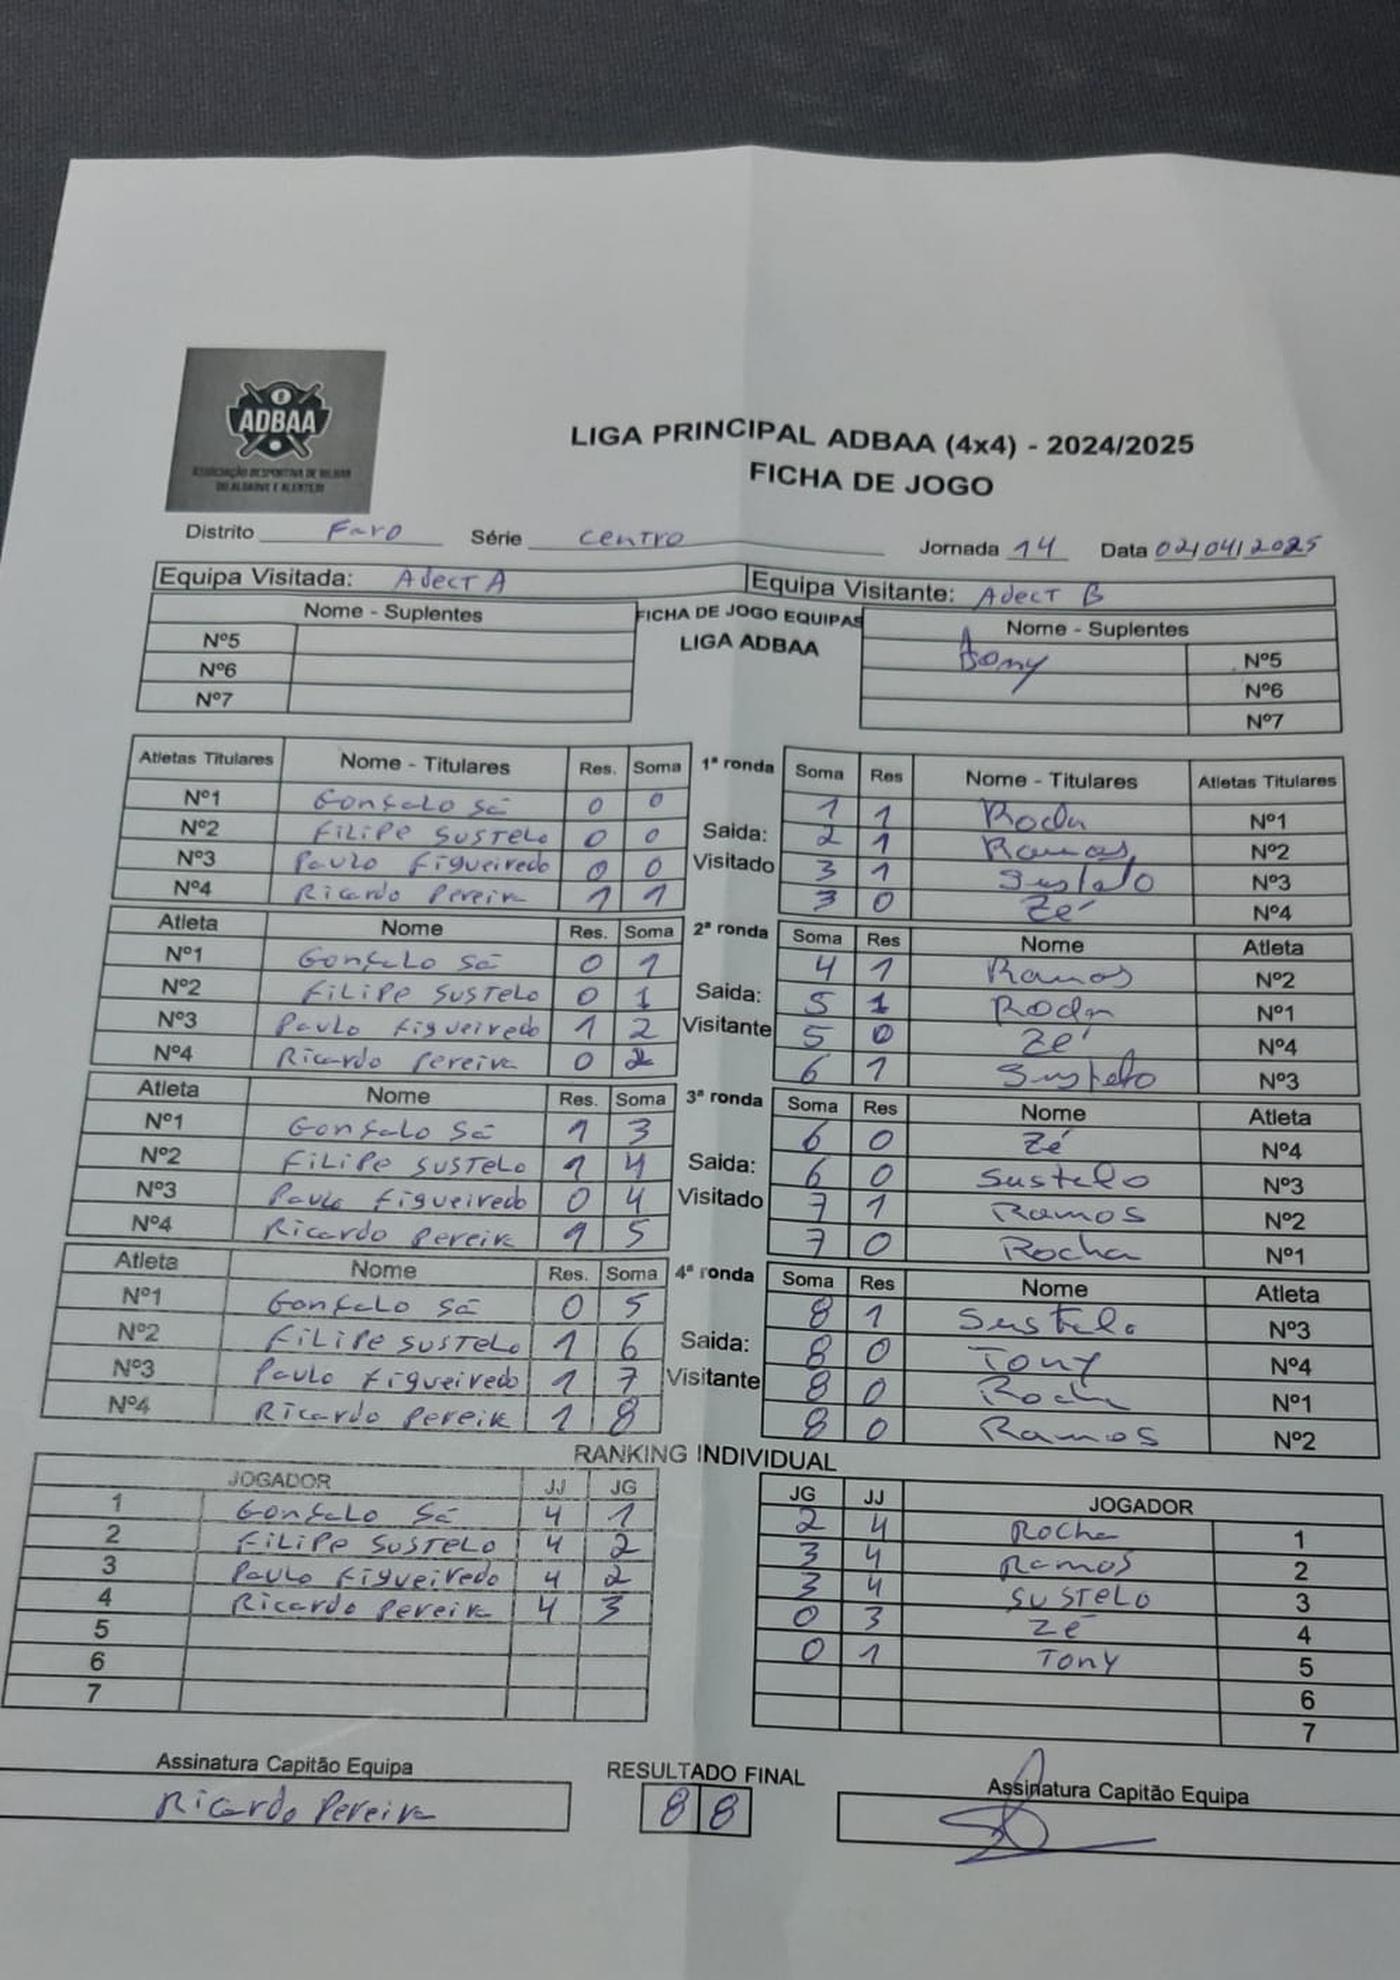 ADBAA
ASSOCIAÇÃO DESPORTIVA DE BILHAR
DO ALGARVE E ALENTEJO
LIGA PRINCIPAL ADBAA (4x4) - 2024/2025
FICHA DE JOGO
Distrito Faro Série Centro Jornada 14 Data 02/04/2025
Equipa Visitada: Adect A Equipa Visitante: Adect B
Nome - Suplentes FICHA DE JOGO EQUIPAS Nome - Suplentes
LIGA ADBAA
Nº5 Tony Nº5
Nº6 Nº6
Nº7 Nº7
Atletas Titulares Nome - Titulares Res. Soma 1ª ronda Soma Res Nome - Titulares Atletas Titulares
Nº1 Gonçalo Sá 0 0 1 1 Rocha Nº1
Nº2 Filipe Sustelo 0 0 Saida: 2 1 Ramos Nº2
Nº3 Paulo Figueiredo 0 0 Visitado 3 1 Sustelo Nº3
Nº4 Ricardo Pereira 1 1 3 0 Zé Nº4
Atleta Nome Res. Soma 2ª ronda Soma Res Nome Atleta
Nº1 Gonçalo Sá 0 1 4 1 Ramos Nº2
Nº2 Filipe Sustelo 0 1 Saida: 5 1 Rocha Nº1
Nº3 Paulo Figueiredo 1 2 Visitante 5 0 Zé Nº4
Nº4 Ricardo Pereira 0 2 6 1 Sustelo Nº3
Atleta Nome Res. Soma 3ª ronda Soma Res Nome Atleta
Nº1 Gonçalo Sá 1 3 6 0 Zé Nº4
Nº2 Filipe Sustelo 1 4 Saida: 6 0 Sustelo Nº3
Nº3 Paulo Figueiredo 0 4 Visitado 7 1 Ramos Nº2
Nº4 Ricardo Pereira 1 5 7 0 Rocha Nº1
Atleta Nome Res. Soma 4ª ronda Soma Res Nome Atleta
Nº1 Gonçalo Sá 0 5 8 1 Sustelo Nº3
Nº2 Filipe Sustelo 1 6 Saida: 8 0 Tony Nº4
Nº3 Paulo Figueiredo 1 7 Visitante 8 0 Rocha Nº1
Nº4 Ricardo Pereira 1 8 8 0 Ramos Nº2
RANKING INDIVIDUAL
JOGADOR JJ JG JG JJ JOGADOR
1 Gonçalo Sá 4 1 2 4 Rocha 1
2 Filipe Sustelo 4 2 3 4 Ramos 2
3 Paulo Figueiredo 4 2 3 4 Sustelo 3
4 Ricardo Pereira 4 3 0 3 Zé 4
5 0 1 Tony 5
6 6
7 7
Assinatura Capitão Equipa RESULTADO FINAL Assinatura Capitão Equipa
Ricardo Pereira 8 8